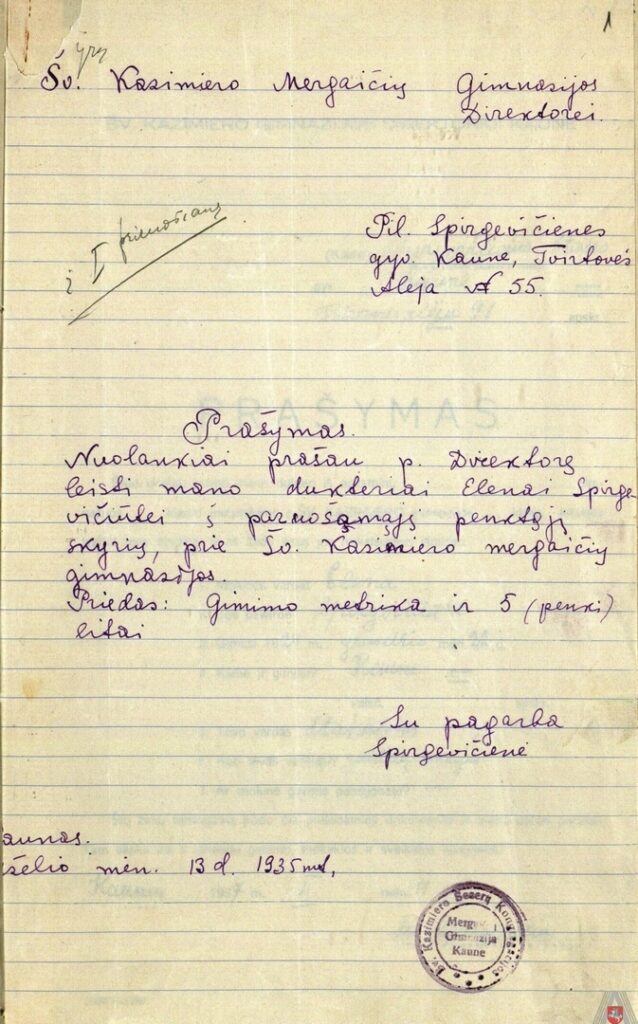 1
Šv. Kazimiero Mergaičių Gimnazijos
Direktorei.
į I
Pil. Spirgevičienės
gyv. Kaune, Tvirtovės
Aleja № 55.
Prašymas.
Nuolankiai prašau p. Direktorę
leisti mano dukteriai Elenai Spirge
vičiūtei į paruošamąjį penktąjį
skyrių, prie Šv. Kazimiero mergaičių
gimnazijos.
Priedas: Gimimo metrika ir 5 (penki)
litai
Su pagarba
Spirgevičienė
aunas.
želio mėn. 13 d. 1935 mt,
Šv. Kazimiero Seserų Kongregacijos
Gimnazija
Kaune
PRAŠYMAS